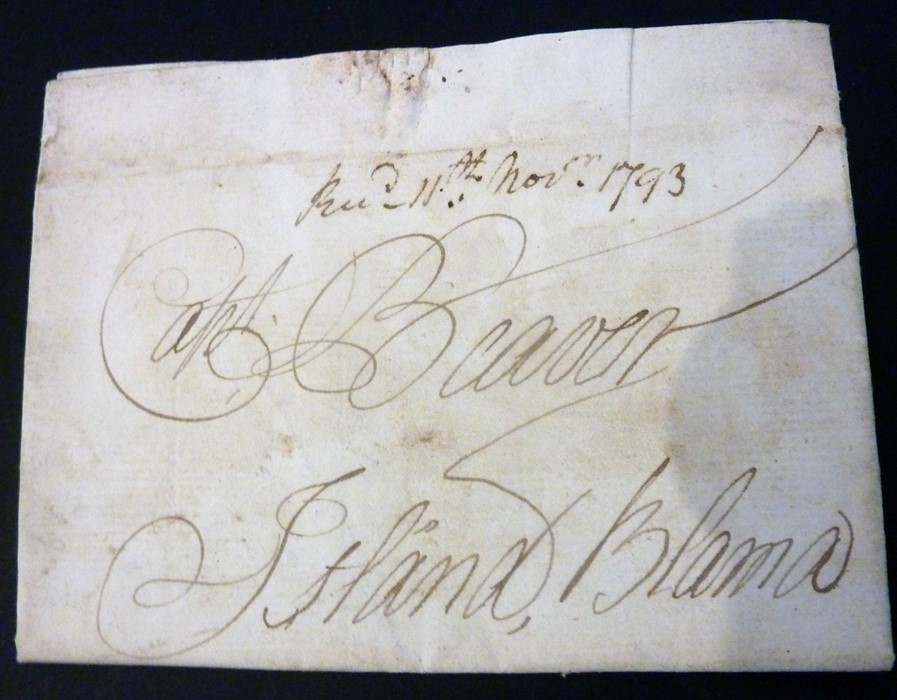 Recd 11th Novr 1793
Capt. Beaver
Island, Blama